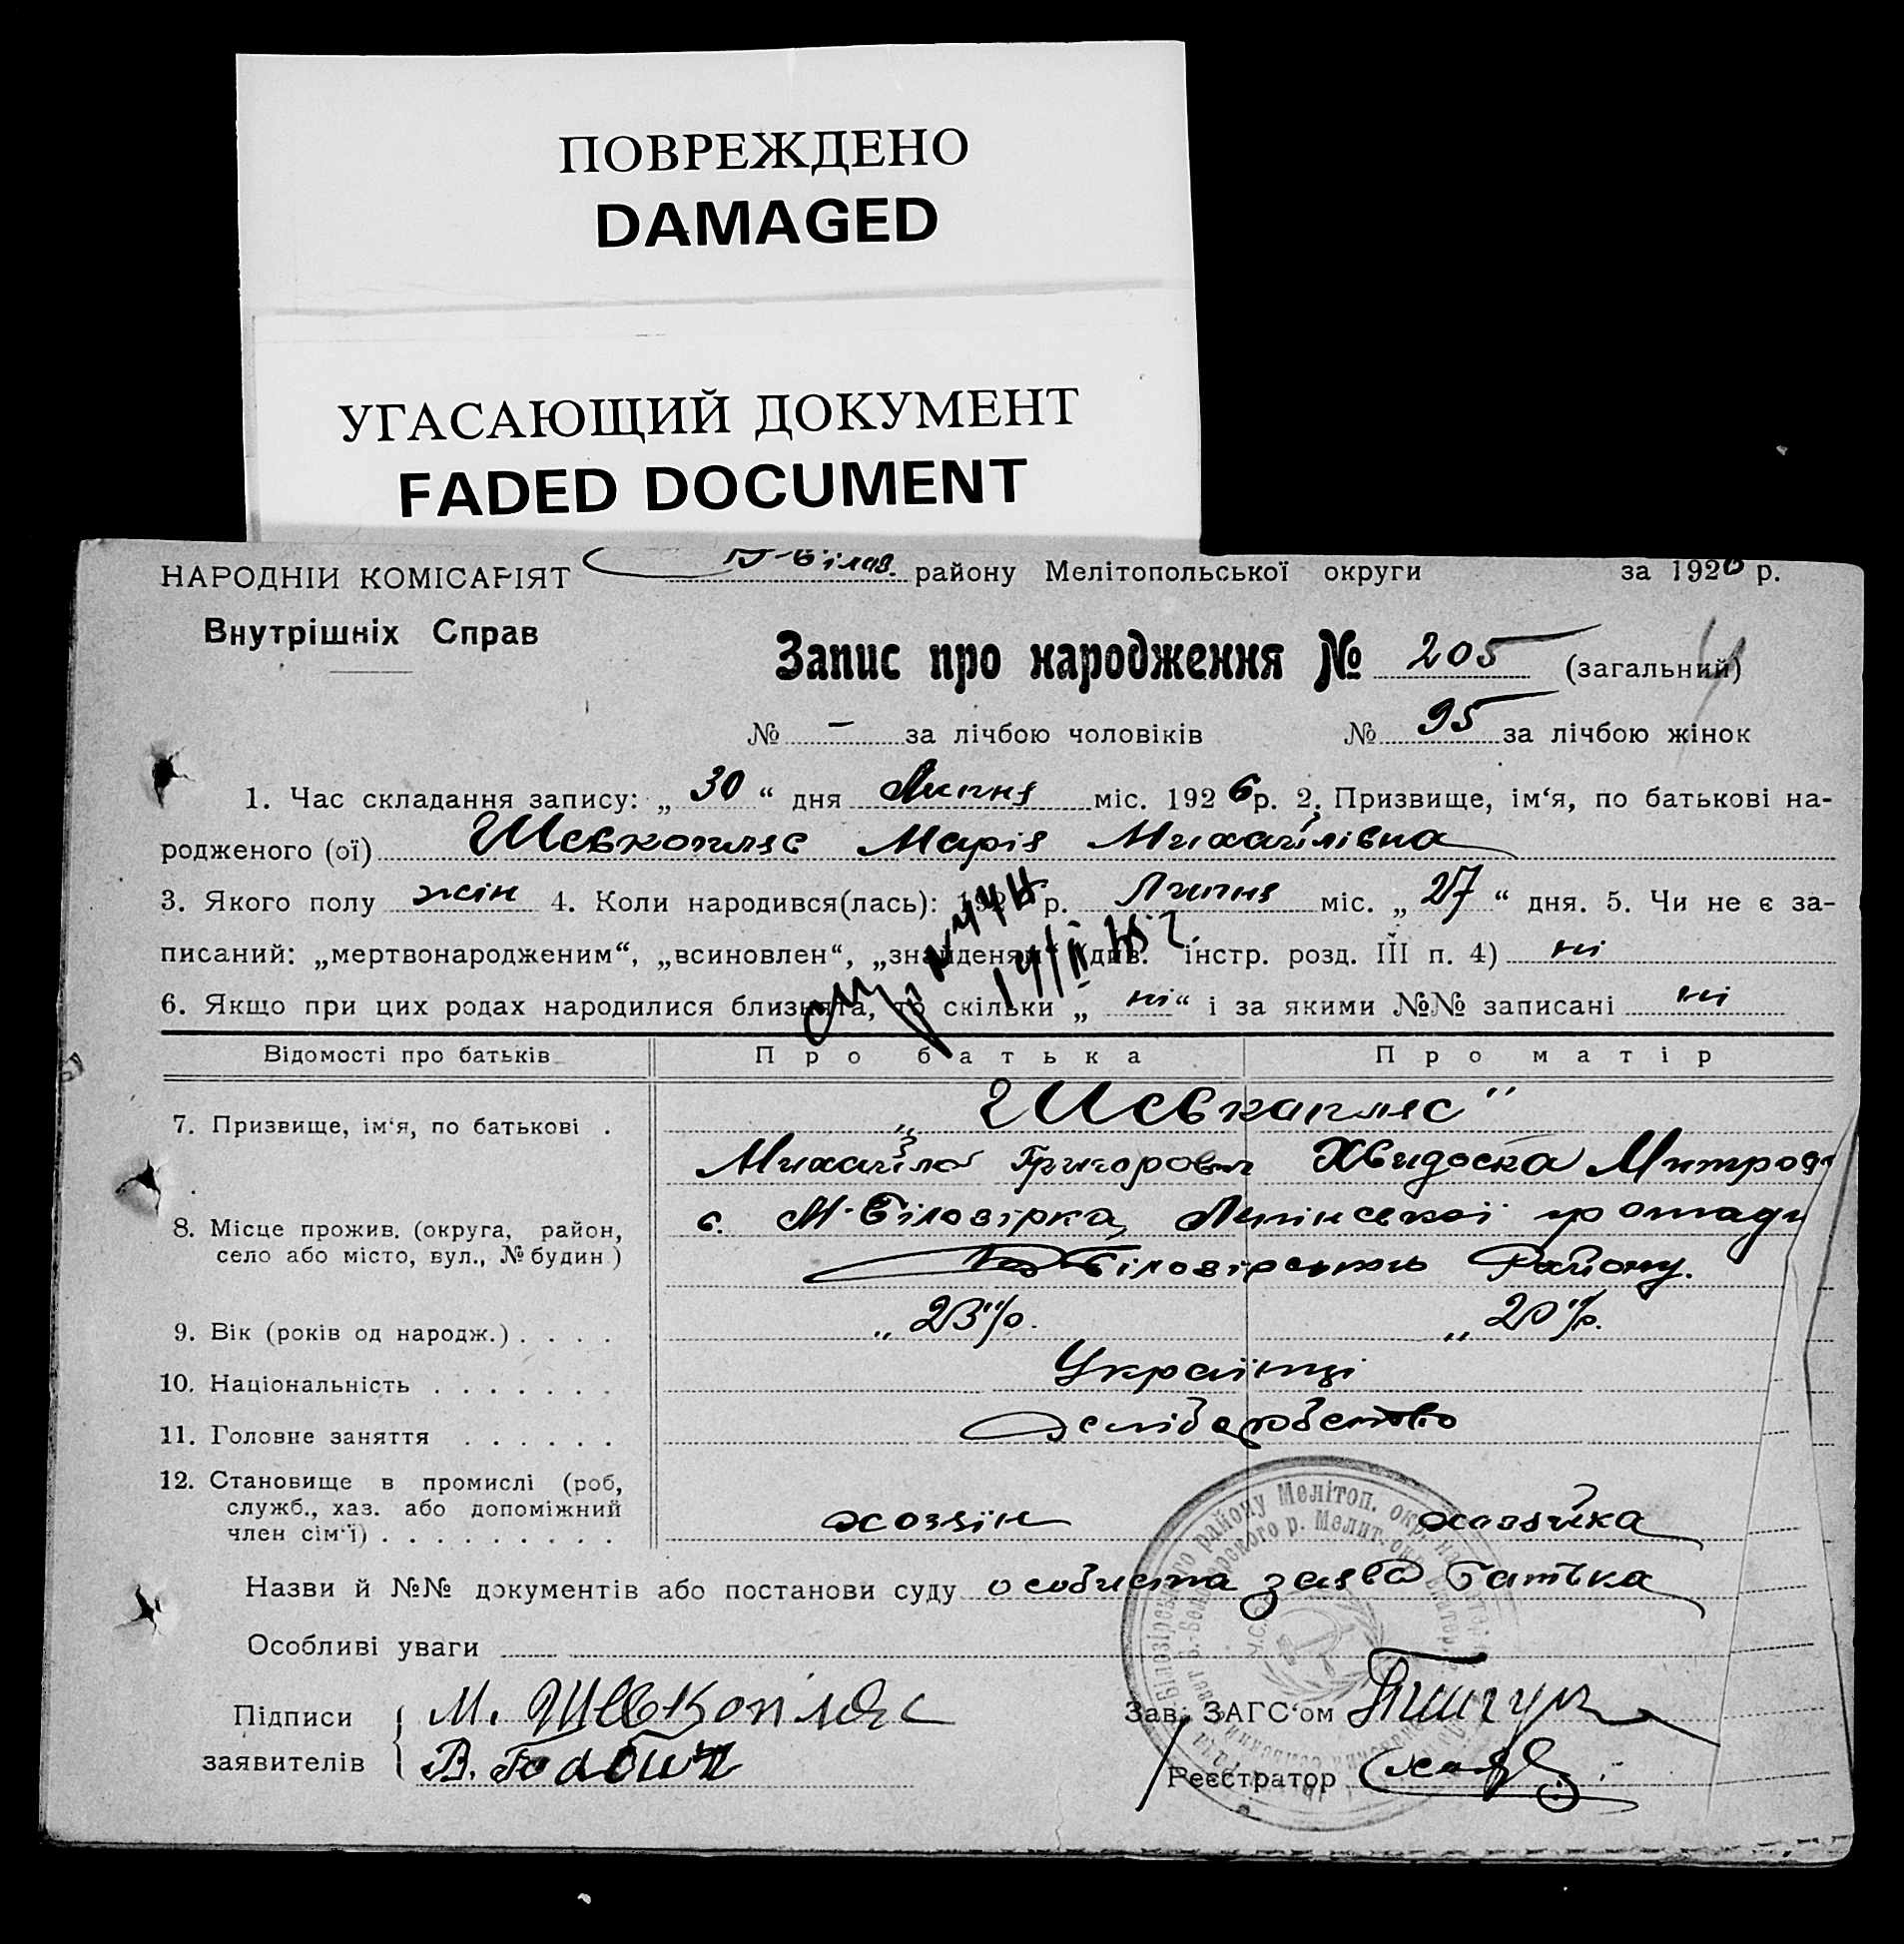 ПОВРЕЖДЕНО
DAMAGED
УГАСАЮЩИЙ ДОКУМЕНТ
FADED DOCUMENT
НАРОДНІЙ КОМІСАРІЯТ району Мелітопольської округи за 1926 р.
Внутрішніх Справ
Запис про народження № 205 (загальний)
№ – за лічбою чоловіків № 95 за лічбою жінок
1. Час складання запису: „ 30 “ дня Липня міс. 1926 р. 2. Призвище, ім‘я, по батькові на-
родженого (ої) Шевкопляс Марія Михайлівна
3. Якого полу жін 4. Коли народився(лась): 192 р. Липня міс. „ 27 “ дня. 5. Чи не є за-
писаний: „мертвонародженим“, „всиновлен“, „знайденям“ (див. інстр. розд. III п. 4) ні
6. Якщо при цих родах народилися близнята, то скільки „ ні “ і за якими №№ записані ні
Відомості про батьків Про батька Про матір
7. Призвище, ім‘я, по батькові . „ Шевкапляс"
Михайло Григорович Хвидоска
8. Місце прожив. (округа, район, с. М-Біловірка,  громади
село або місто, вул., № будин) Району.
9. Вік (років од народж.) . . . . „ 23 „ 20
10. Національність . . . . . . . Українці
11. Головне заняття . . . . . .
12. Становище в промислі (роб,
служб., хаз. або допоміжний хозяін хозяйка
член сім‘ї) . . . . . . . . .
Назви й №№ документів або постанови суду особиста заява батька
Особливі уваги
Підписи М. Шевкопляс Зав. ЗАГС‘ом
заявителів В. Реєстратор